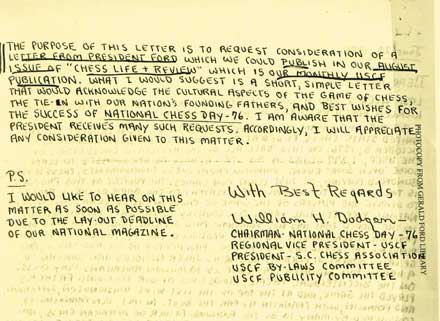 THE PURPOSE OF THIS LETTER IS TO REQUEST CONSIDERATION OF A
LETTER FROM PRESIDENT FORD WHICH WE COULD PUBLISH IN OUR AUGUST
ISSUE OF "CHESS LIFE + REVIEW" WHICH IS OUR MONTHLY USCF
PUBLICATION. WHAT I WOULD SUGGEST IS A SHORT, SIMPLE LETTER
THAT WOULD ACKNOWLEDGE THE CULTURAL ASPECTS OF THE GAME OF CHESS,
THE TIE-IN WITH OUR NATION'S FOUNDING FATHERS, AND BEST WISHES FOR
THE SUCCESS OF NATIONAL CHESS DAY-76. I AM AWARE THAT THE
PRESIDENT RECEIVES MANY SUCH REQUESTS. ACCORDINGLY, I WILL APPRECIATE
ANY CONSIDERATION GIVEN TO THIS MATTER.
P.S.
I WOULD LIKE TO HEAR ON THIS
MATTER AS SOON AS POSSIBLE
DUE TO THE LAY-OUT DEADLINE
OF OUR NATIONAL MAGAZINE.
With Best Regards
William H. Dodgen-
CHAIRMAN-NATIONAL CHESS DAY-76
REGIONAL VICE PRESIDENT-USCF
PRESIDENT- S.C. CHESS ASSOCIATION
USCF BY-LAWS COMMITTEE
USCF PUBLICITY COMMITTEE
PHOTOCOPY FROM GERALD FORD LIBRARY